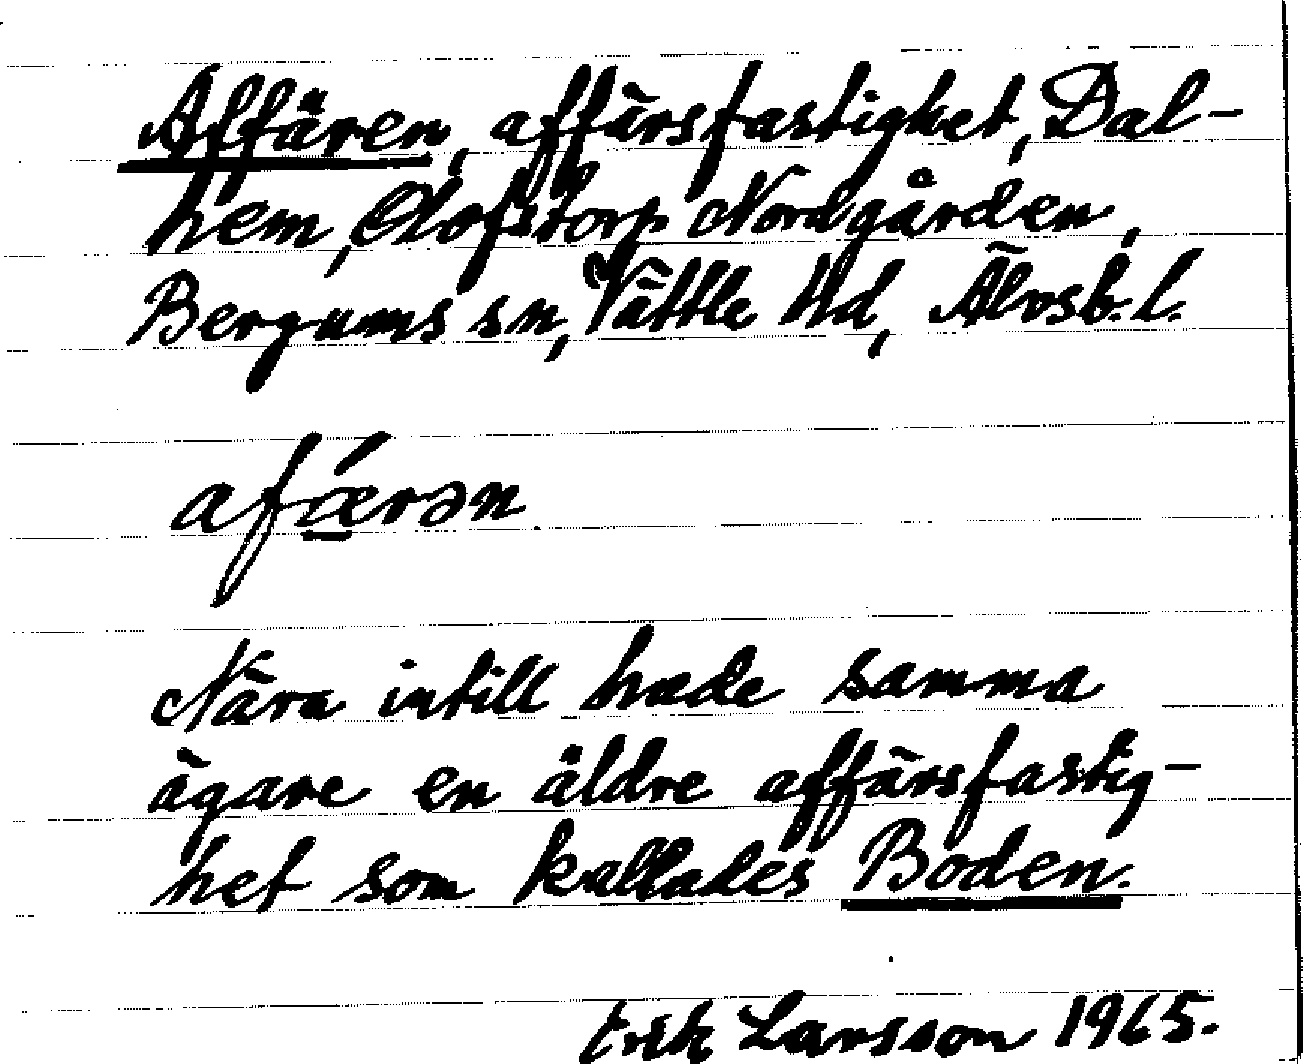 Affären, affärsfastighet, Dal-
hem, Olofstorp Nordgården,
Bergums sn, Vättle Hd, Älvsb. l.
afǽrən
Nära intill hade samma
ägare en äldre affärsfastig-
het som kallades Boden.
Erik Larsson 1965.